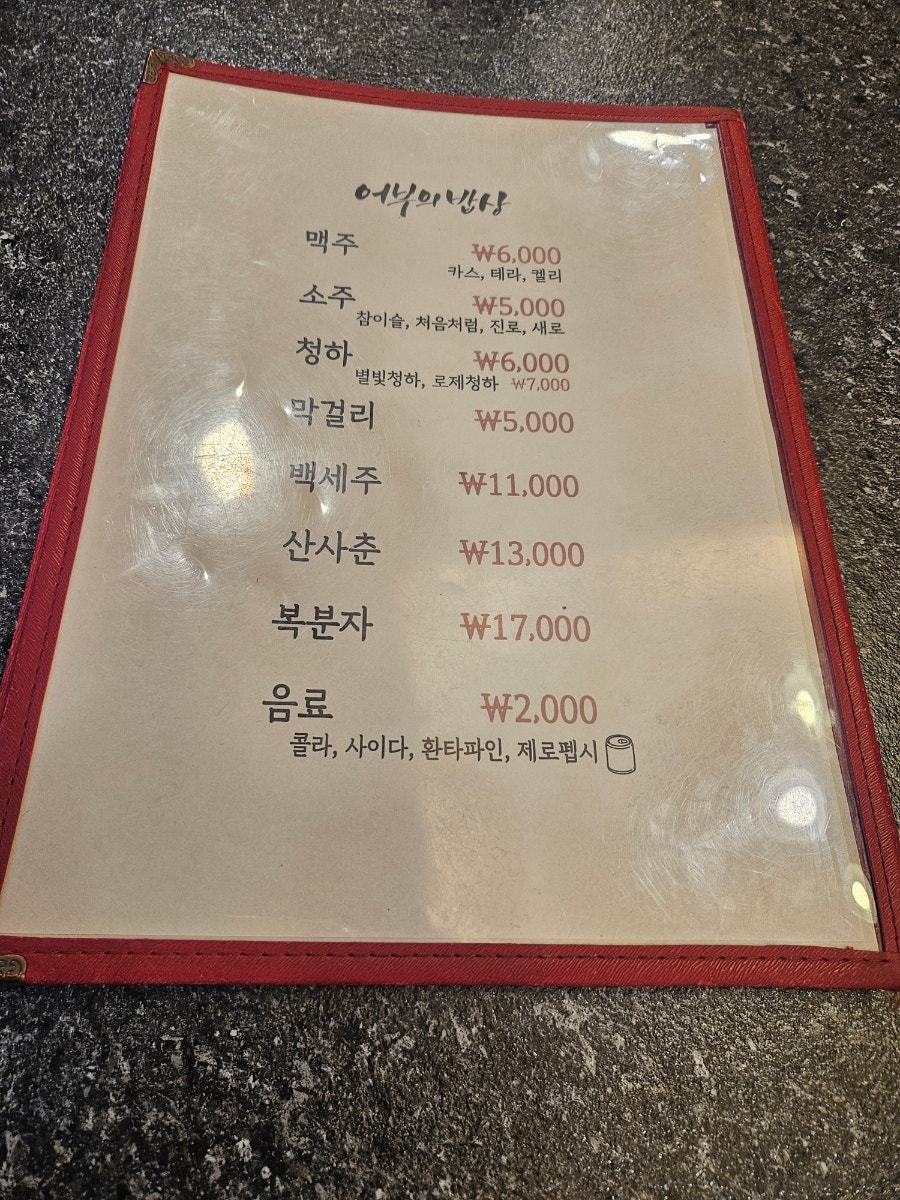 어부의밥상
맥주 ₩6,000
카스, 테라, 켈리
소주 ₩5,000
참이슬, 처음처럼, 진로, 새로
청하 ₩6,000
별빛청하, 로제청하 ₩7,000
막걸리 ₩5,000
백세주 ₩11,000
산사춘 ₩13,000
복분자 ₩17,000
음료 ₩2,000
콜라, 사이다, 환타파인, 제로펩시